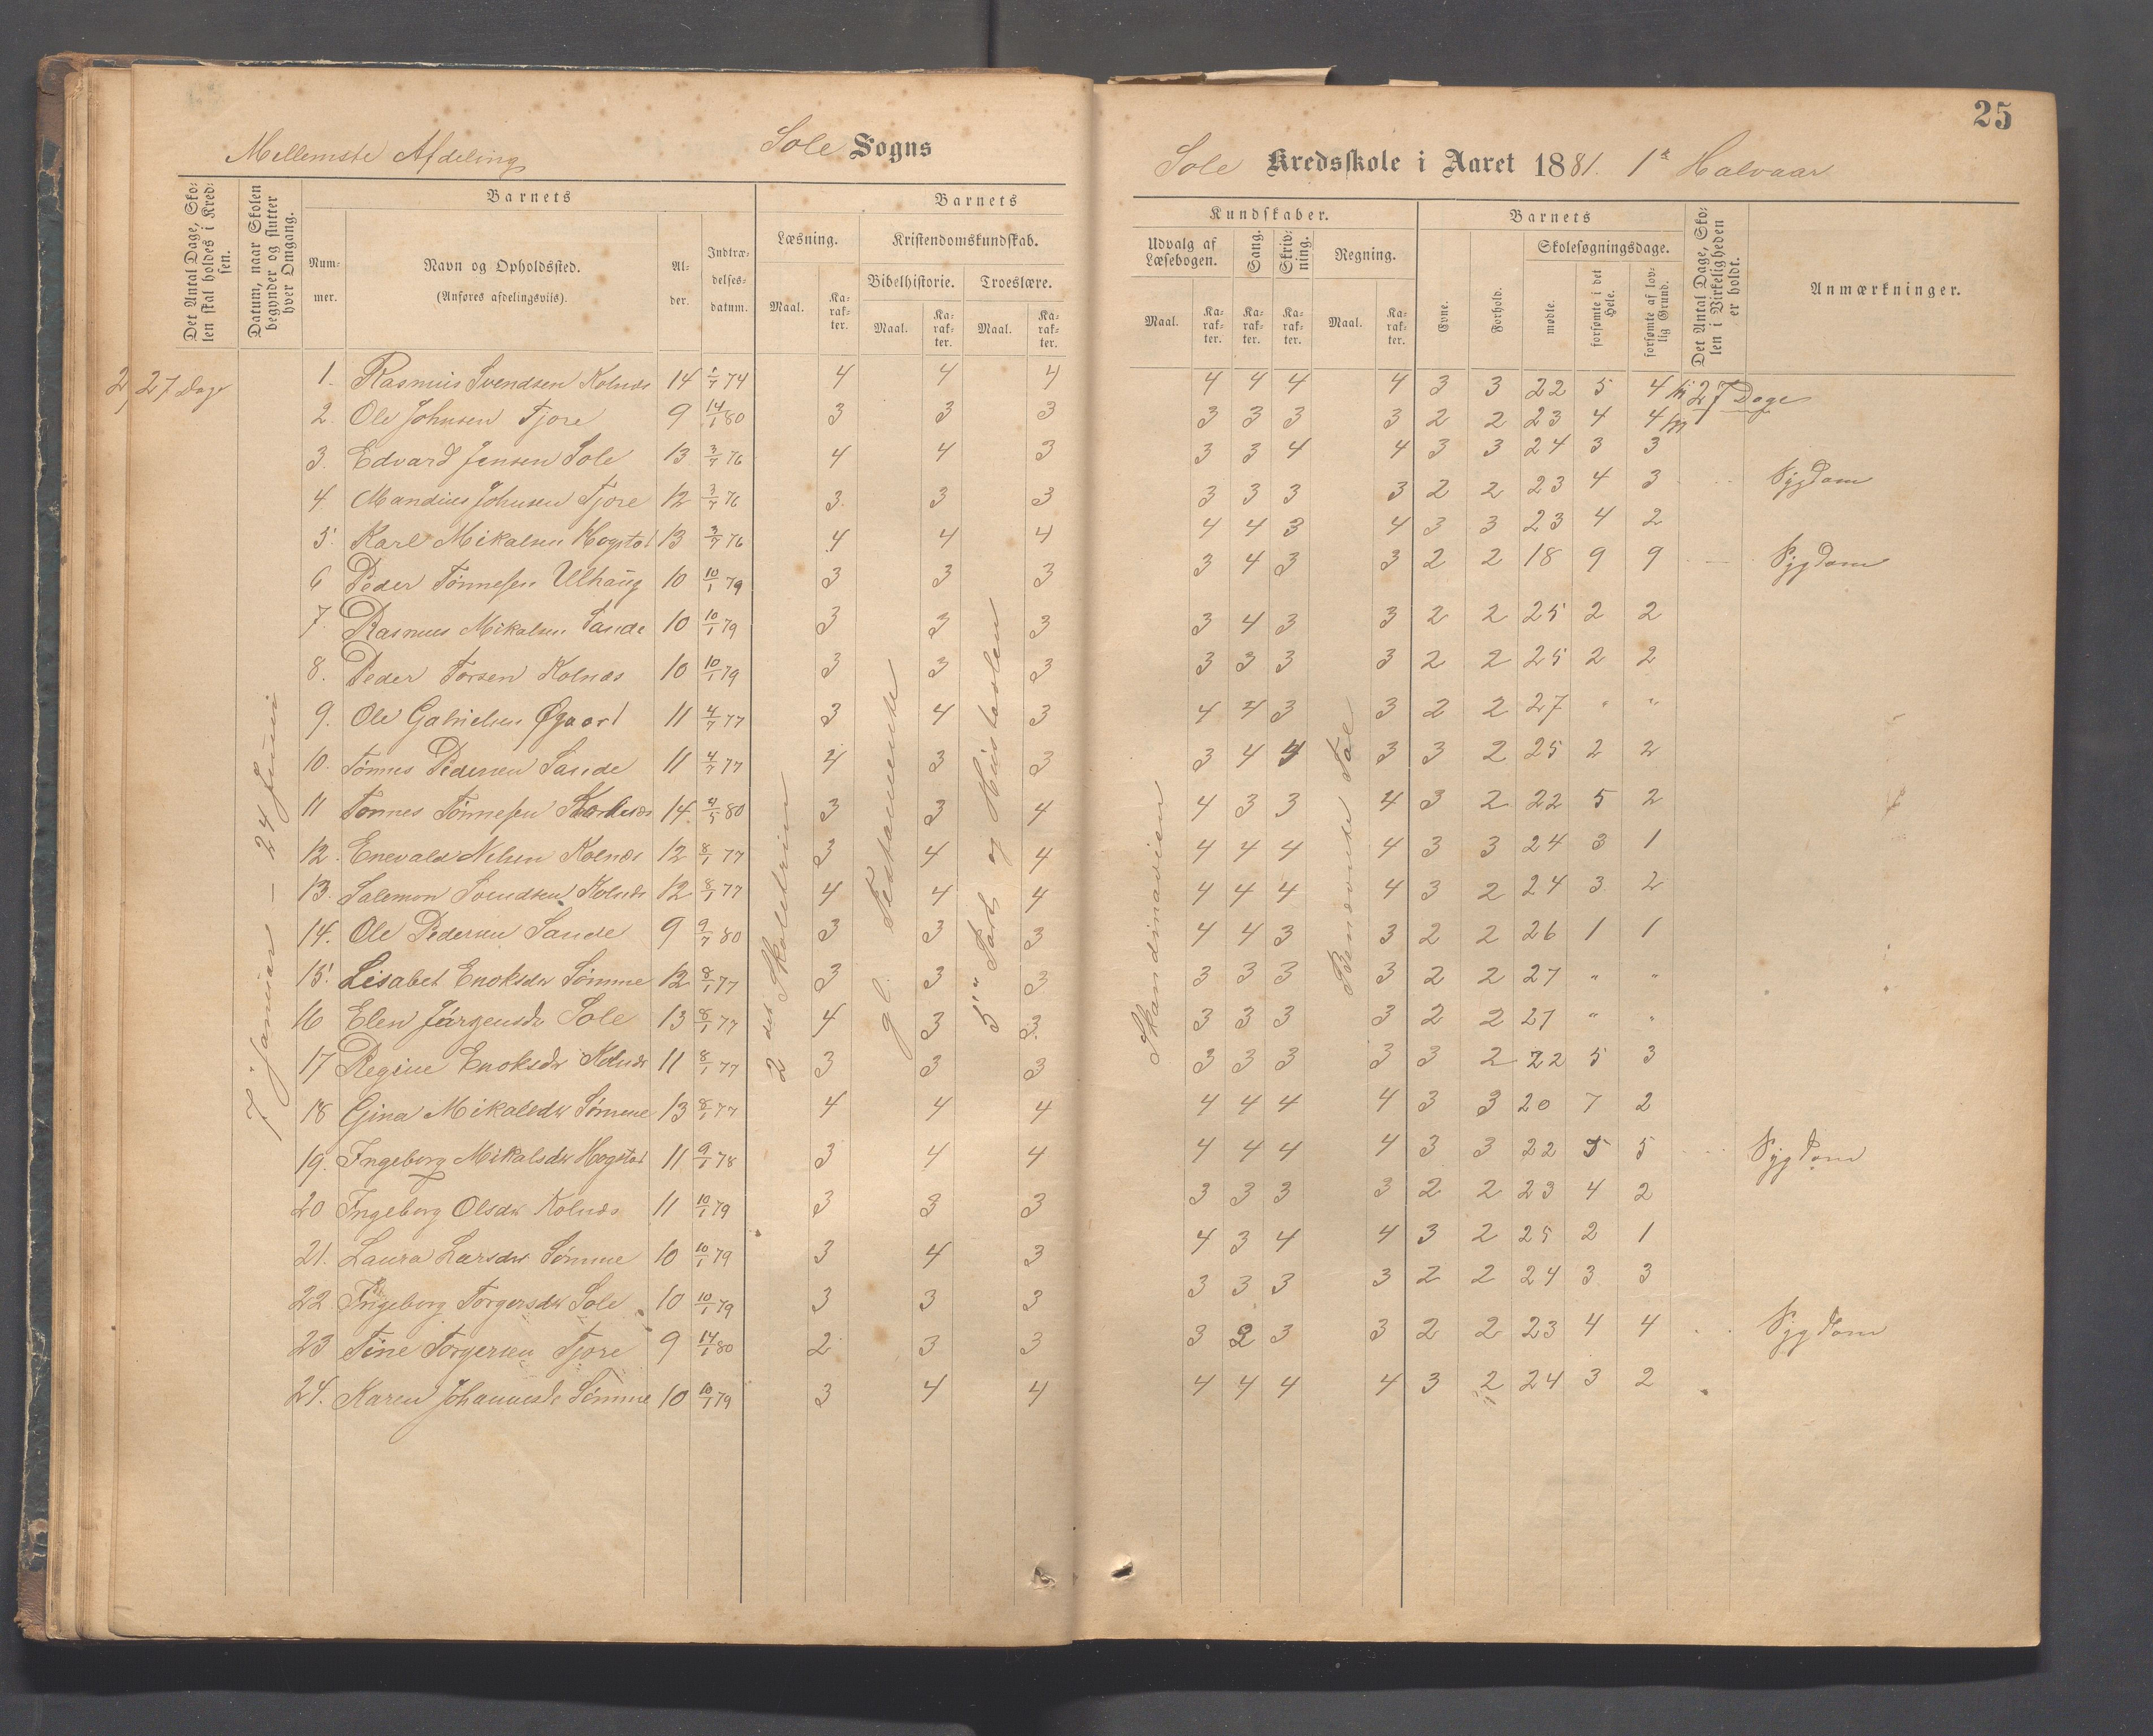 25
Mellemste Afdeling
Sole Sogns
Sole Kredsskole i Aaret 1881. 1ste Halvaar
Det Antal Dage, Skolen skal holdes i Kredsen.
Datum, naar Skolen begynder og slutter hver Omgang.
Barnets
Nummer.
Navn og Opholdssted.
(Anføres afdelingsvis).
Alder.
Indtrædelsesdatum.
Barnets
Læsning.
Kristendomskundskab.
Bibelhistorie.
Troeslære.
Maal.
Karakter.
Maal.
Karakter.
Maal.
Karakter.
Kundskaber.
Udvalg af Læsebogen.
Sang.
Skrivning.
Regning.
Maal.
Karakter.
Karakter.
Karakter.
Maal.
Karakter.
Barnets
Evne.
Forhold.
Skolesøgningsdage.
mødte.
forsømte i det Hele.
forsømte af lovlig Grund.
Det Antal Dage, Skolen i Virkeligheden er holdt.
Anmærkninger.
27 Dage
7 Januar - 24 Juni
2det Skoletrin
gl. Testamente
5te Part og Hustavlen
Skandinavien
Benævnte Tal
1. Rasmus Svendsen Kolnæs 14 1/7 74 4 4 4 4 4 4 4 3 3 22 5 4 27 Dage
2. Ole Johnsen Tjore 9 14/1 80 3 3 3 3 3 3 3 2 2 23 4 4
3. Edvard Jensen Sole 13 3/7 76 4 4 3 3 3 4 4 3 3 24 3 3
4 Mandius Johnsen Tjore 12 3/7 76 3 3 3 3 3 3 3 2 2 23 4 3 Sygdom
5. Karl Mikalsen Hogstad 13 3/7 76 4 4 4 4 4 3 4 3 3 23 4 2
6 Peder Tønnesen Ulhaug 10 10/1 79 3 3 3 3 4 3 3 2 2 18 9 9 Sygdom
7. Rasmus Mikalsen Sande 10 10/1 79 3 3 3 3 4 3 3 2 2 25 2 2
8. Peder Torsen Kolnæs 10 10/1 79 3 3 3 3 3 3 3 2 2 25 2 2
9. Ole Gabrielsen Øgaard 11 4/7 77 3 4 3 4 4 3 3 2 2 27 " "
10. Tønnes Pedersen Sande 11 4/7 77 4 3 3 3 4 4 3 3 2 25 2 2
11 Tønnes Tønnesen 14 4/5 80 3 3 4 4 3 3 4 3 2 22 5 2
12. Enevald Nelsen Kolnæs 12 8/1 77 3 4 4 4 4 4 4 3 3 24 3 1
13. Salemon Svendsen Kolnæs 12 8/1 77 4 4 4 4 4 4 4 3 2 24 3 2
14. Ole Pedersen Sande 9 9/7 80 3 3 3 4 4 3 3 2 2 26 1 1
15. Lisabet Enoksdr Sømme 12 8/1 77 3 3 3 3 3 3 3 2 2 27 " "
16 Elen Jørgensdr Sole 13 8/1 77 4 3 3 3 3 3 3 2 2 27 " "
17 Regine Enoksdr Kolnæs 11 8/1 77 3 3 3 3 3 3 3 3 2 22 5 3
18 Gina Mikalsdr Sømme 13 8/1 77 4 4 4 4 4 4 4 3 3 20 7 2
19. Ingeborg Mikalsdr Hogstad 11 9/1 78 3 4 4 4 4 4 4 3 3 22 5 5 Sygdom
20 Ingeborg Olsdr Kolnæs 11 10/1 79 3 3 3 3 3 3 3 2 2 23 4 2
21. Laura Larsdr Sømme 10 10/1 79 3 4 3 4 3 4 4 3 2 25 2 1
22 Ingeborg Torgersdr Sole 10 10/1 79 3 3 3 3 3 3 3 2 2 24 3 3
23 Tine Torgersen Tjore 9 14/1 80 2 3 3 3 2 3 3 2 2 23 4 4 Sygdom
24. Karen Johannesdr Sømme 10 10/1 79 3 4 4 4 4 4 4 3 2 24 3 2